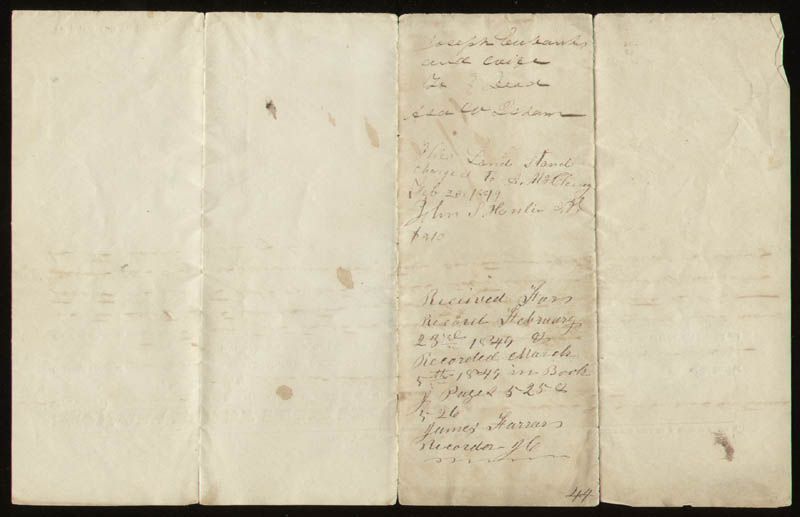 Joseph Eubanks
and wife
To } Deed
Asa W Isham
This Land stand
charged to A. McClung
Feb 20, 1849
John S. Hanlin
Received For
Record February
23rd 1849 &
Recorded March
5th 1849 in Book
J Pages 525 &
526
James Farrar
Recorder J C
44